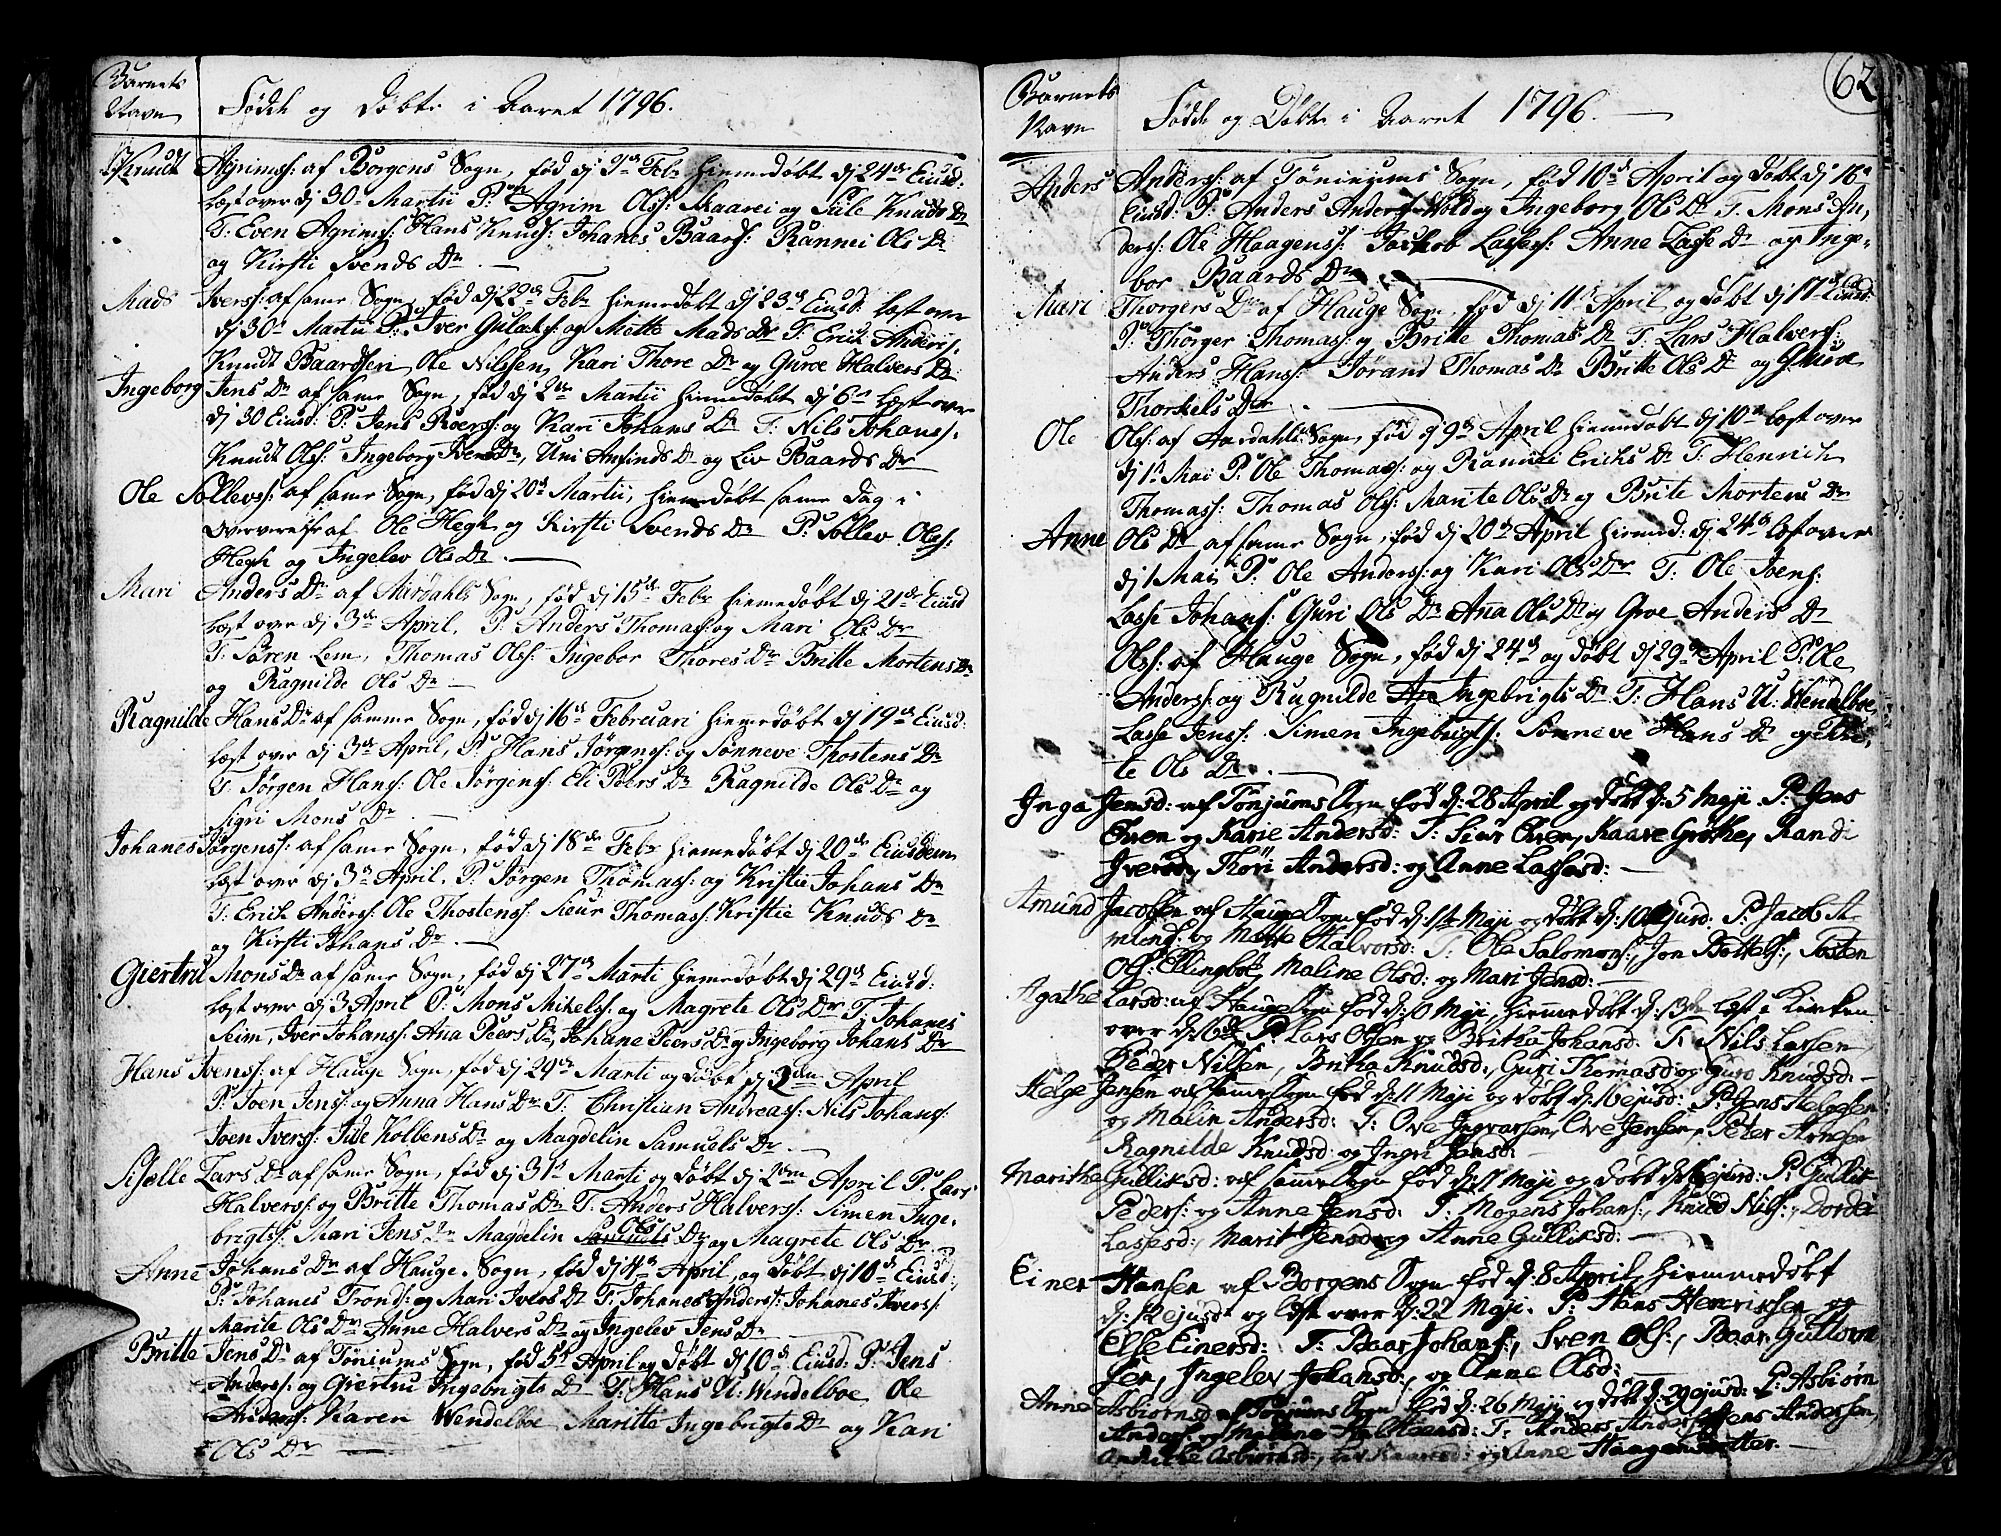 Barnets
Navn
Födde og Döbte i Aaret 1796.
Knudt Agrims: af Borgens Sogn, föd dj 9de Febr hiemedöbt dj 24de Eiusd:
læst over dj 30 Martii P: Agrim Ols: Skaarei og Sile Knuds Dr
T: Even Agrims: Hans Knuds: Johanes Baars: Rannei Ols Dr
og Kirsti Svends Dr
Mads Ivers: af same Sogn, föd dj 22de Febr hiemedöbt dj 23de Eiusd: læst over
dj 30 Martii P: Iver Gulaks: og Mette Mads Dr T: Erick Anders:
Knudt Baardsen, Ole Nilssen, Kari Thore Dr og Guroe Halvers Dr
Ingeborg Jens Dr af same Sogn, föd dj 2den Martii hiemedöbt dj 6te læst over
dj 30 Eiusd: P: Jens Roers: og Kari Johans Dr T: Nils Johans:
Knudt Ols: Ingeborg Ivens Dr, Uni Anfinds Dr og Liv Baards Dr
Ole Sollevs: af same Sogn, föd dj 20de Martii, hiemedöbt same dag i
oververelse af Ole Hegh og Kirsti Svends Dr P: Sollev Ols:
Hegh og Ingelev Ols Dr
Mari Anders Dr af Aardahls Sogn, föd dj 15de Febr hiemedöbt dj 21de Eiusd
læst over dj 3de April, P: Anders Thomas: og Mari Ols Dr
T: Sören Lem, Thomas Ols: Ingebor Thores Dr Britte Mortens Dr
og Ragnilde Ols Dr
Ragnilde Hans Dr af samme Sogn, föd dj 16de Februari hiemedöbt dj 19de Eiusd:
læst over dj 3de April, P: Hans Jörgens: og Sönneve Thostens Dr
T: Jörgen Hans: Ole Jörgens: Eli Peers Dr Ragnilde Ols Dr og
Sigri Mons Dr
Johanes Jörgens: af same Sogn, föd dj 18de Febr hiemedöbt dj 20de Eiusdem
læst over dj 3de April. P: Jörgen Thomas: og Kristie Johans Dr
T: Erick Anders: Ole Thostens: Sieur Thomas: Kristie Knuds Dr
og Kirsti Johans Dr
Giertrul Mons Dr af same Sogn, föd dj 27de Marti hiemedöbt dj 29de Eiusd:
læst over dj 3 April P: Mons Mikels: og Magrete Ols Dr T: Johanes
Seim, Iver Johans: Ana Peers Dr, Johane Peers Dr og Ingeborg Johans Dr
Hans Ivens: af Hauge Sogn, föd dj 29de Marti og döbt dj 2den April
P: Joen Jens: og Anna Hans Dr T: Christian Andreas: Nils Johans:
Joen Ivers: Sile Kolbens Dr og Magdelin Samuels Dr
Siselle Lars Dr af same Sogn, föd dj 31te Marti og döbt dj 2den April P: Lars
Halvers: og Britte Thomas Dr T: Anders Halvers: Simen Inge-
brigts: Mari Jens Dr Magdelin Samuels Ols Dr og Magrete Ols Dr
Anne Johans Dr af Hauge Sogn, föd dj 4de April, og döbt dj 10de Eiusd:
P: Johanes Tronds: og Mari Ivers Dr T: Johanes Anders: Johanes Ivers:
Marite Ols Dr Anne Halvers Dr og Ingelev Jens Dr
Britte Jens Dr af Töniums Sogn, föd 5te April og döbt dj 10de Eiusd: P: Jens
Anders: og Giertru Ingebrigts Dr T: Hans U: Wendelboe Ole
Anders: Karen Wendelboe Maritte Ingebrigts Dr og Kari
Ols Dr
62
Barnets
Navn
Födde og Döbte i Aaret 1796.
Anders Anders: af Töniums Sogn, föd 10de April og döbt dj 16de
Eiusd: P: Anders Anders: Wold og Ingeborg Ols Dr T: Mons An-
ders: Ole Haagens: Jackob Lasses: Anne Lasse Dr og Inge-
bor Baards Dr
Mari Thorgers Dr af Hauge Sogn, föd dj 11te April, og döbt dj 17de Eiusd:
P: Thorger Thomas: og Britte Thomas Dr T: Lars Halvers:
Anders Hans: Jorand Thomas Dr Britte Ols Dr og Guroe
Thorkels Dr
Ole Ols: af Aardahls Sogn, föd dj 9de April hiemedöbt dj 10de læst over
dj 1te Mai P: Ole Thomas: og Rannei Ericks Dr T: Henrich
Thomas: Thomas Ols: Marite Ols Dr og Brite Mortens Dr
Anne Ols Dr af same Sogn, föd dj 20de April hiemed: dj 24de læst over
dj 1 Mai, P: Ole Anders: og Kari Ols Dr T: Ole Ivens:
Lasse Johans: Guri Ols Dr Ana Ols Dr og Groe Anders Dr
Ols: af Hauge Sogn, föd dj 24de og döbt dj 29de April P: Ole
Anders: og Ragnilde Ingebrigts Dr T: Hans U: Wendelboe,
Lasse Jens: Simen Ingebrigts: Sönneve Hans Dr og
te Ols Dr
Inga Jensd: af Tönjums Sogn föd d: 28 April og döbt d: 5 Maji. P: Jens
Iven og Karie Andersd: T: Siur Iver, Kaare Grothe, Randi
Iversd, Thori Andersd: og Anne Lassesd:
Amund Jacobsen af Hauge Sogn föd d: 1te Maji og döbt d: 10 Ejusd: P: Jacob A-
munds: og Mette Halvorsd: T: Ole Salomons:, Jon Bottels:, Tosten
Ols: Ellingboe, Maline Olsd: og Mari Jensd:
Agathe Larsd: af Hauge Sogn föd d: 10 Maji, hiemmedöbt d: 13de læst i Kirken
over d: 16de P: Lars Olsen og Britha Johansd. T: Nils Larsen,
Peder Nilsen, Britha Knudsd:, Guri Thomasd og Guro Knudsd:
Helge Jensen af samme Sogn föd d: 11 Maji og döbt d: 16 ejusd: P: Jens Helgesen
og Malin Andersd: T: Ove Ingvarsen, Ove Jensen, Peter Arnesen
Ragnilde Knudsd: og Ingri Jensd:
Marithe Gulliksd: af samme Sogn föd d: 11 Maji og döbt d: 16 ejusd: P: Gullik
Peders: og Anne Jensd. T: Mogens Johans:, Knud Nils:, Dordei
Lassesd:, Marit Jensd: og Anne Gulliksd:
Einer Hansen af Borgens Sogn föd d: 8 April, hiemmedöbt
d: ejusd: og læst over d: 22 Maji. P: Hans Henriksen og
Else Einersd: T: Baar Johans:, Sven Ols:, Baar Guttorm
sen, Ingelev Johansd:, og Anne Olsd:
Anne Asbiörnsd: af Tönjums Sogn föd d: 26 Maji og döbt d: 29 ejusd: P: Asbiörn
Anders: og Malene T: Anders Anders: Jens Andersen
Asbiörnsd:, Liv Baarsd: og Anne Haagensdatter.